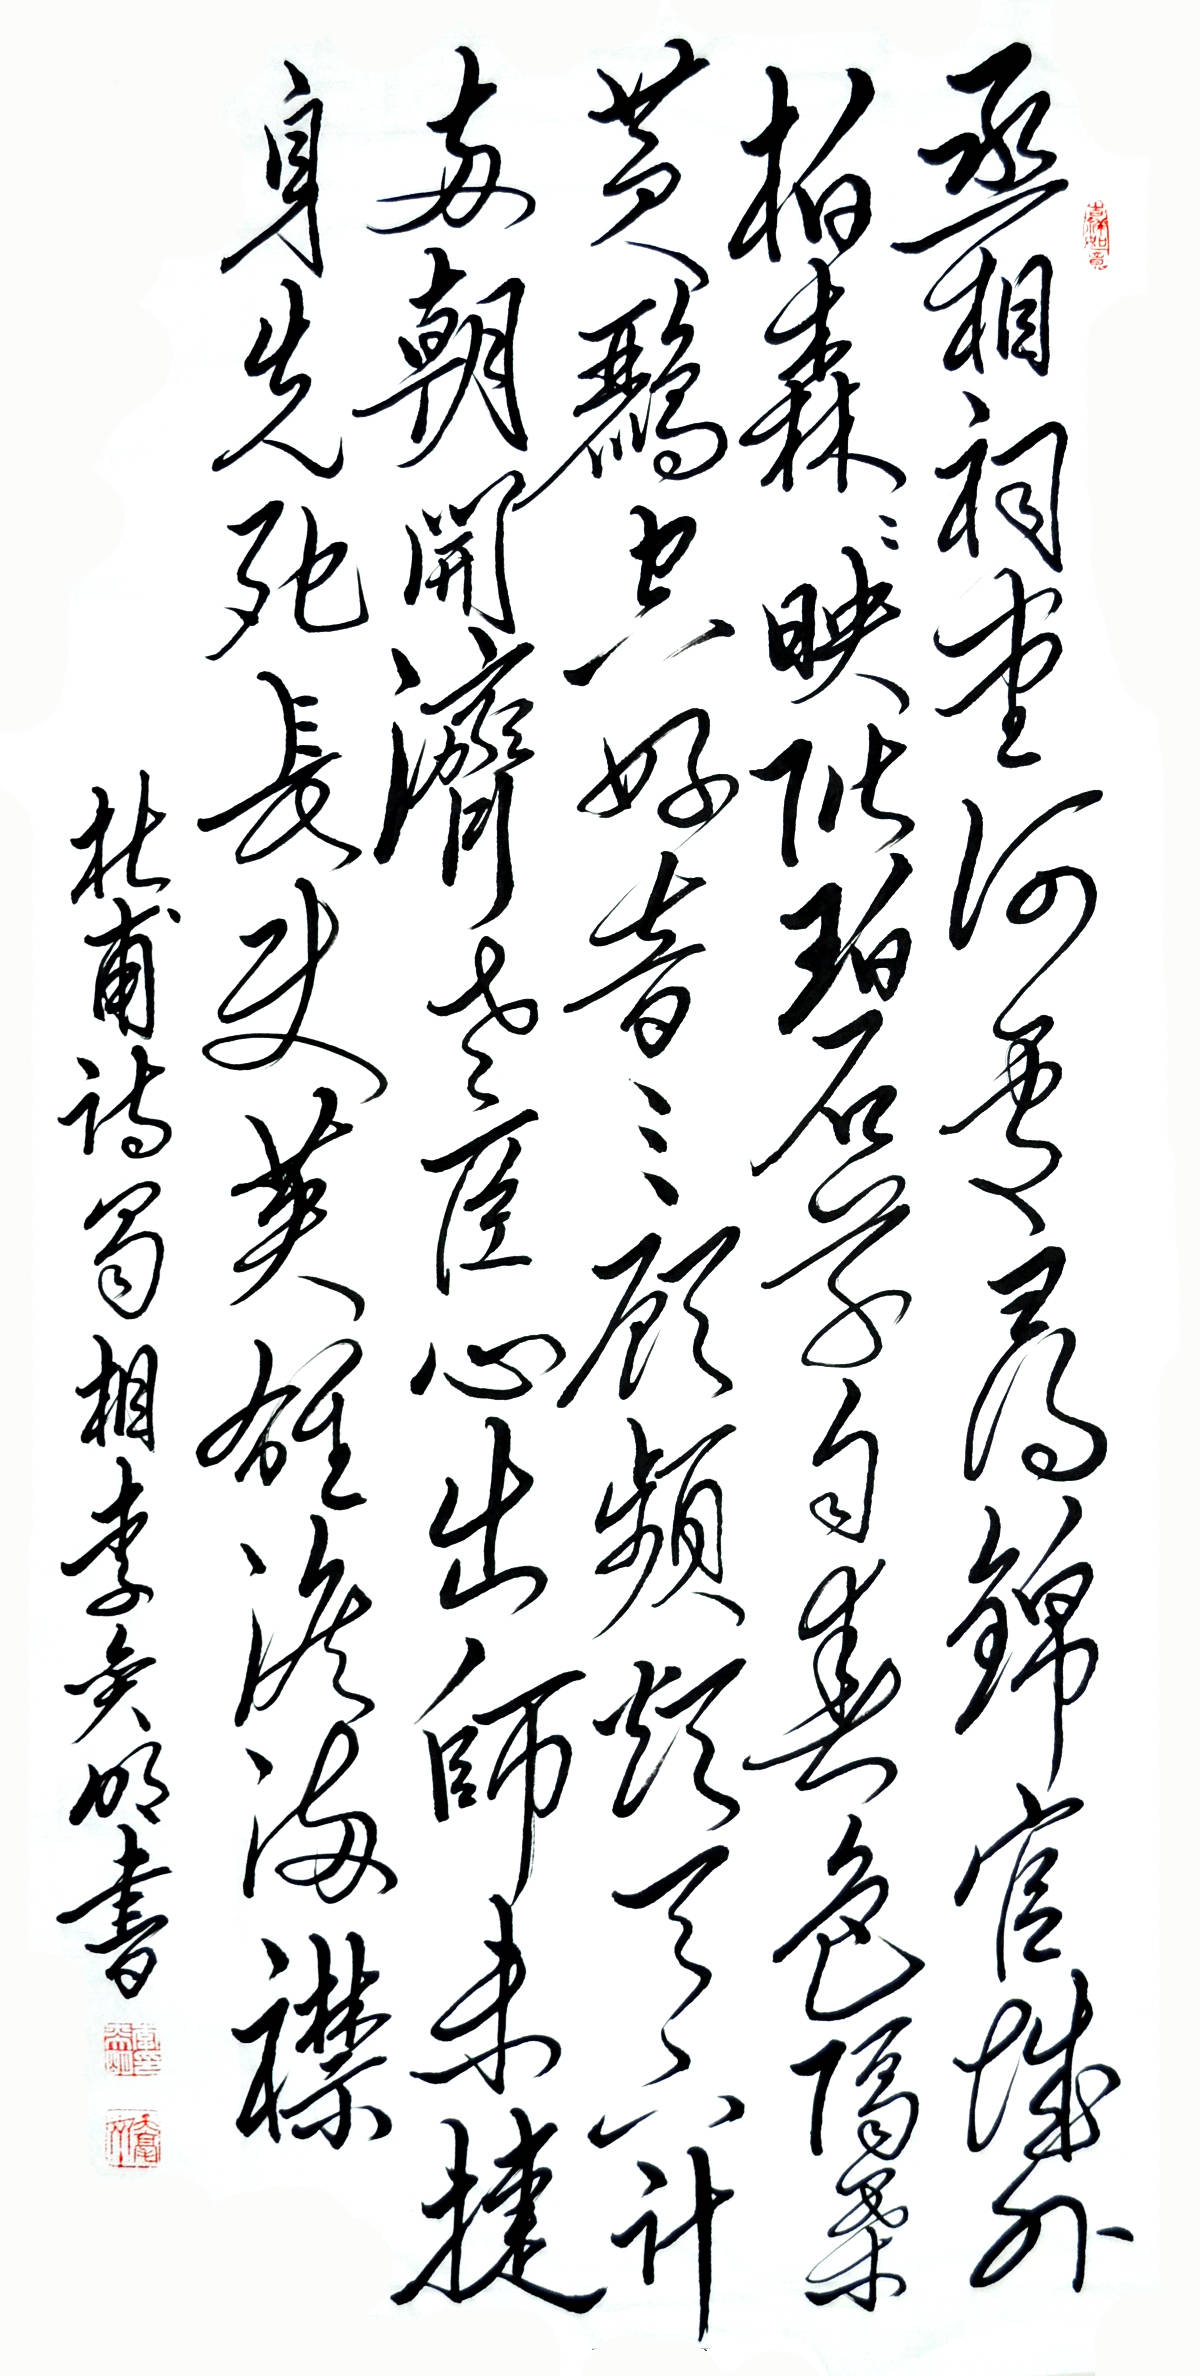 吉祥如意
丞相祠堂何處尋錦官城外
柏森〻映階碧草自春色隔葉
黃鸝空好音三顧頻煩天下計
兩朝開濟老臣心出師未捷
身先死長使英雄淚滿襟
杜甫詩蜀相李明書